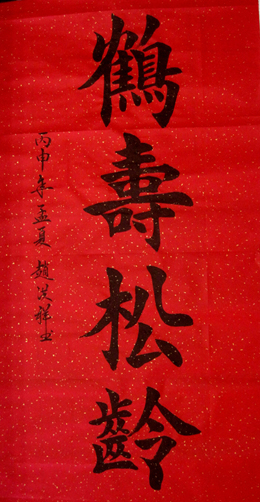 鶴壽松齡
丙申年孟夏 趙洪祥書